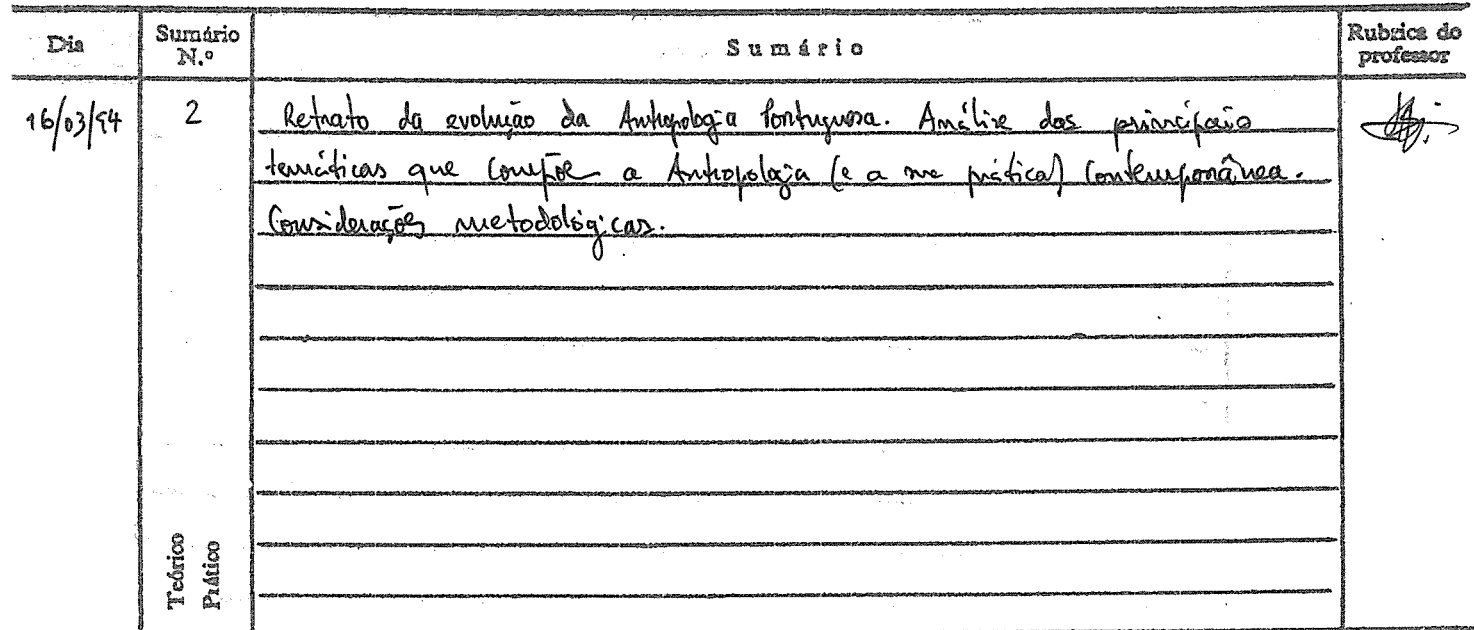 Dia Sumário N.º Sumário Rubrica do professor
16/03/94 2 Retrato da evolução da Antropologia Portuguesa. Análise das principais
temáticas que compõe a Antropologia (e a sua prática) Contemporânea.
Considerações metodológicas.
Teórico
Prático